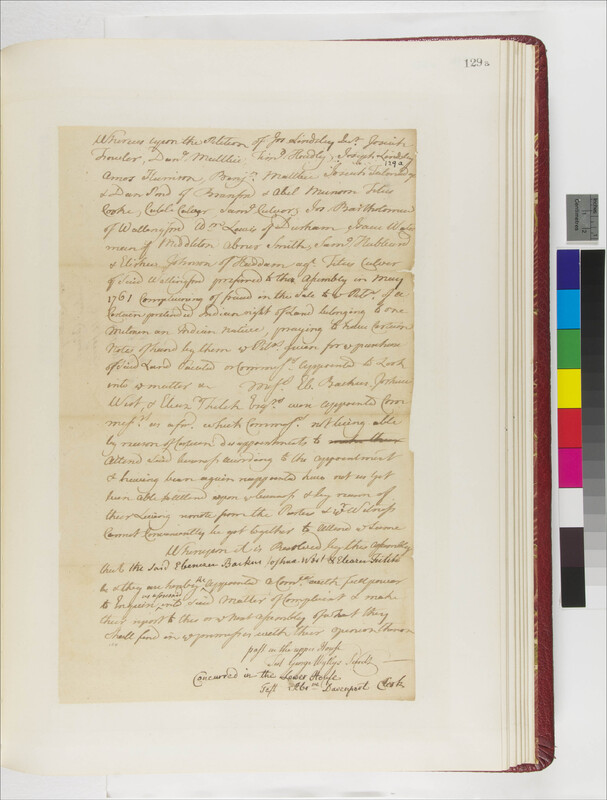 129b
Whereas upon the Petition of Jos Lindsley Junr. Josiah
Fowler, Danl. Malthie Simn. Hindly, Joseph Lindsley
129a
Amos Harrison, Benjn. Malthie Josiah
& Dan Pond of Branford & Abel Munson Titus
Cooke, Caleb Culver Saml. Culver, Jos. Bartholomew
of Wallingford Wm. Lewis of Durham Isaac
man of Middleton Abner Smith, Saml. Hubbard
& Elihu Johnson of Haddam agt. Titus Culver
of Said Wallingford preferred to this Assembly in May
1761 Complaining of fraud in the Sale to ye Petrs. of a
Certain pretended Indian right of Land belonging to one
an Indian native, praying to have Certain
Notes of hand by them ye Petrs. given for ye purchase
of Said Land or Commrs. appointed to Look
into ye matter &c Messrs. Eb. Backus, Joshua
West, & Eleazr. Fitch Esqrs. were appointed Com
 as afors. which Commrs. not being able
by reason of disappointments to make them
Attend Said business according to the appointment
& having been again reappointed have not as yet
been able to attend upon ye business & by reason of
their Living remote from the Parties & ye Witnesses
Cannot Conveniently be got together to Attend ye Same
Whereupon it is Resolved by this Assembly
that the Said Ebenezer Backus Joshua West & Eleazer Fitch
be & they are hereby appointed a Comtee. with full power
as aforesaid
to Enquire into Said Matter of Complaint & make
their report to this or ye next Assembly of what they
Shall find in ye premises with their opinion thereon
past in the upper House
Test George Wyllys Secrety
Concurred in the Lower House
Test Abrm Davenport Clerk
Centimetres